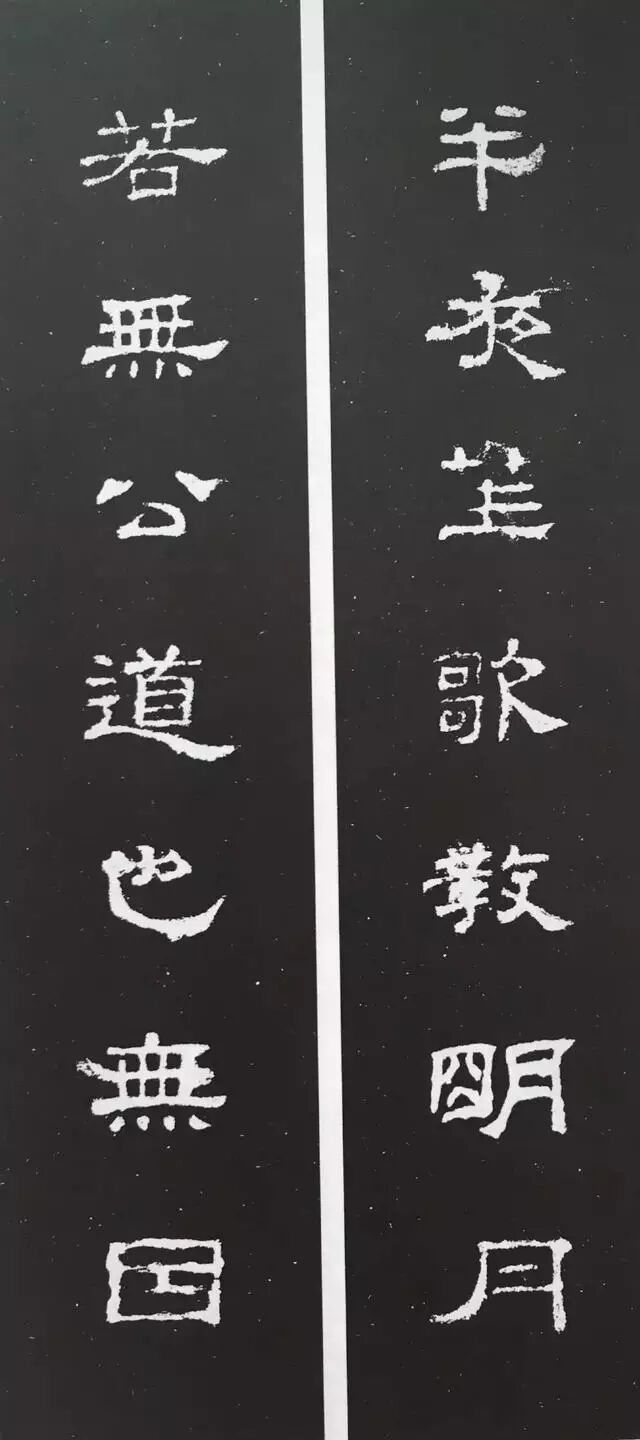 半夜笙歌教明月
若無公道也無因